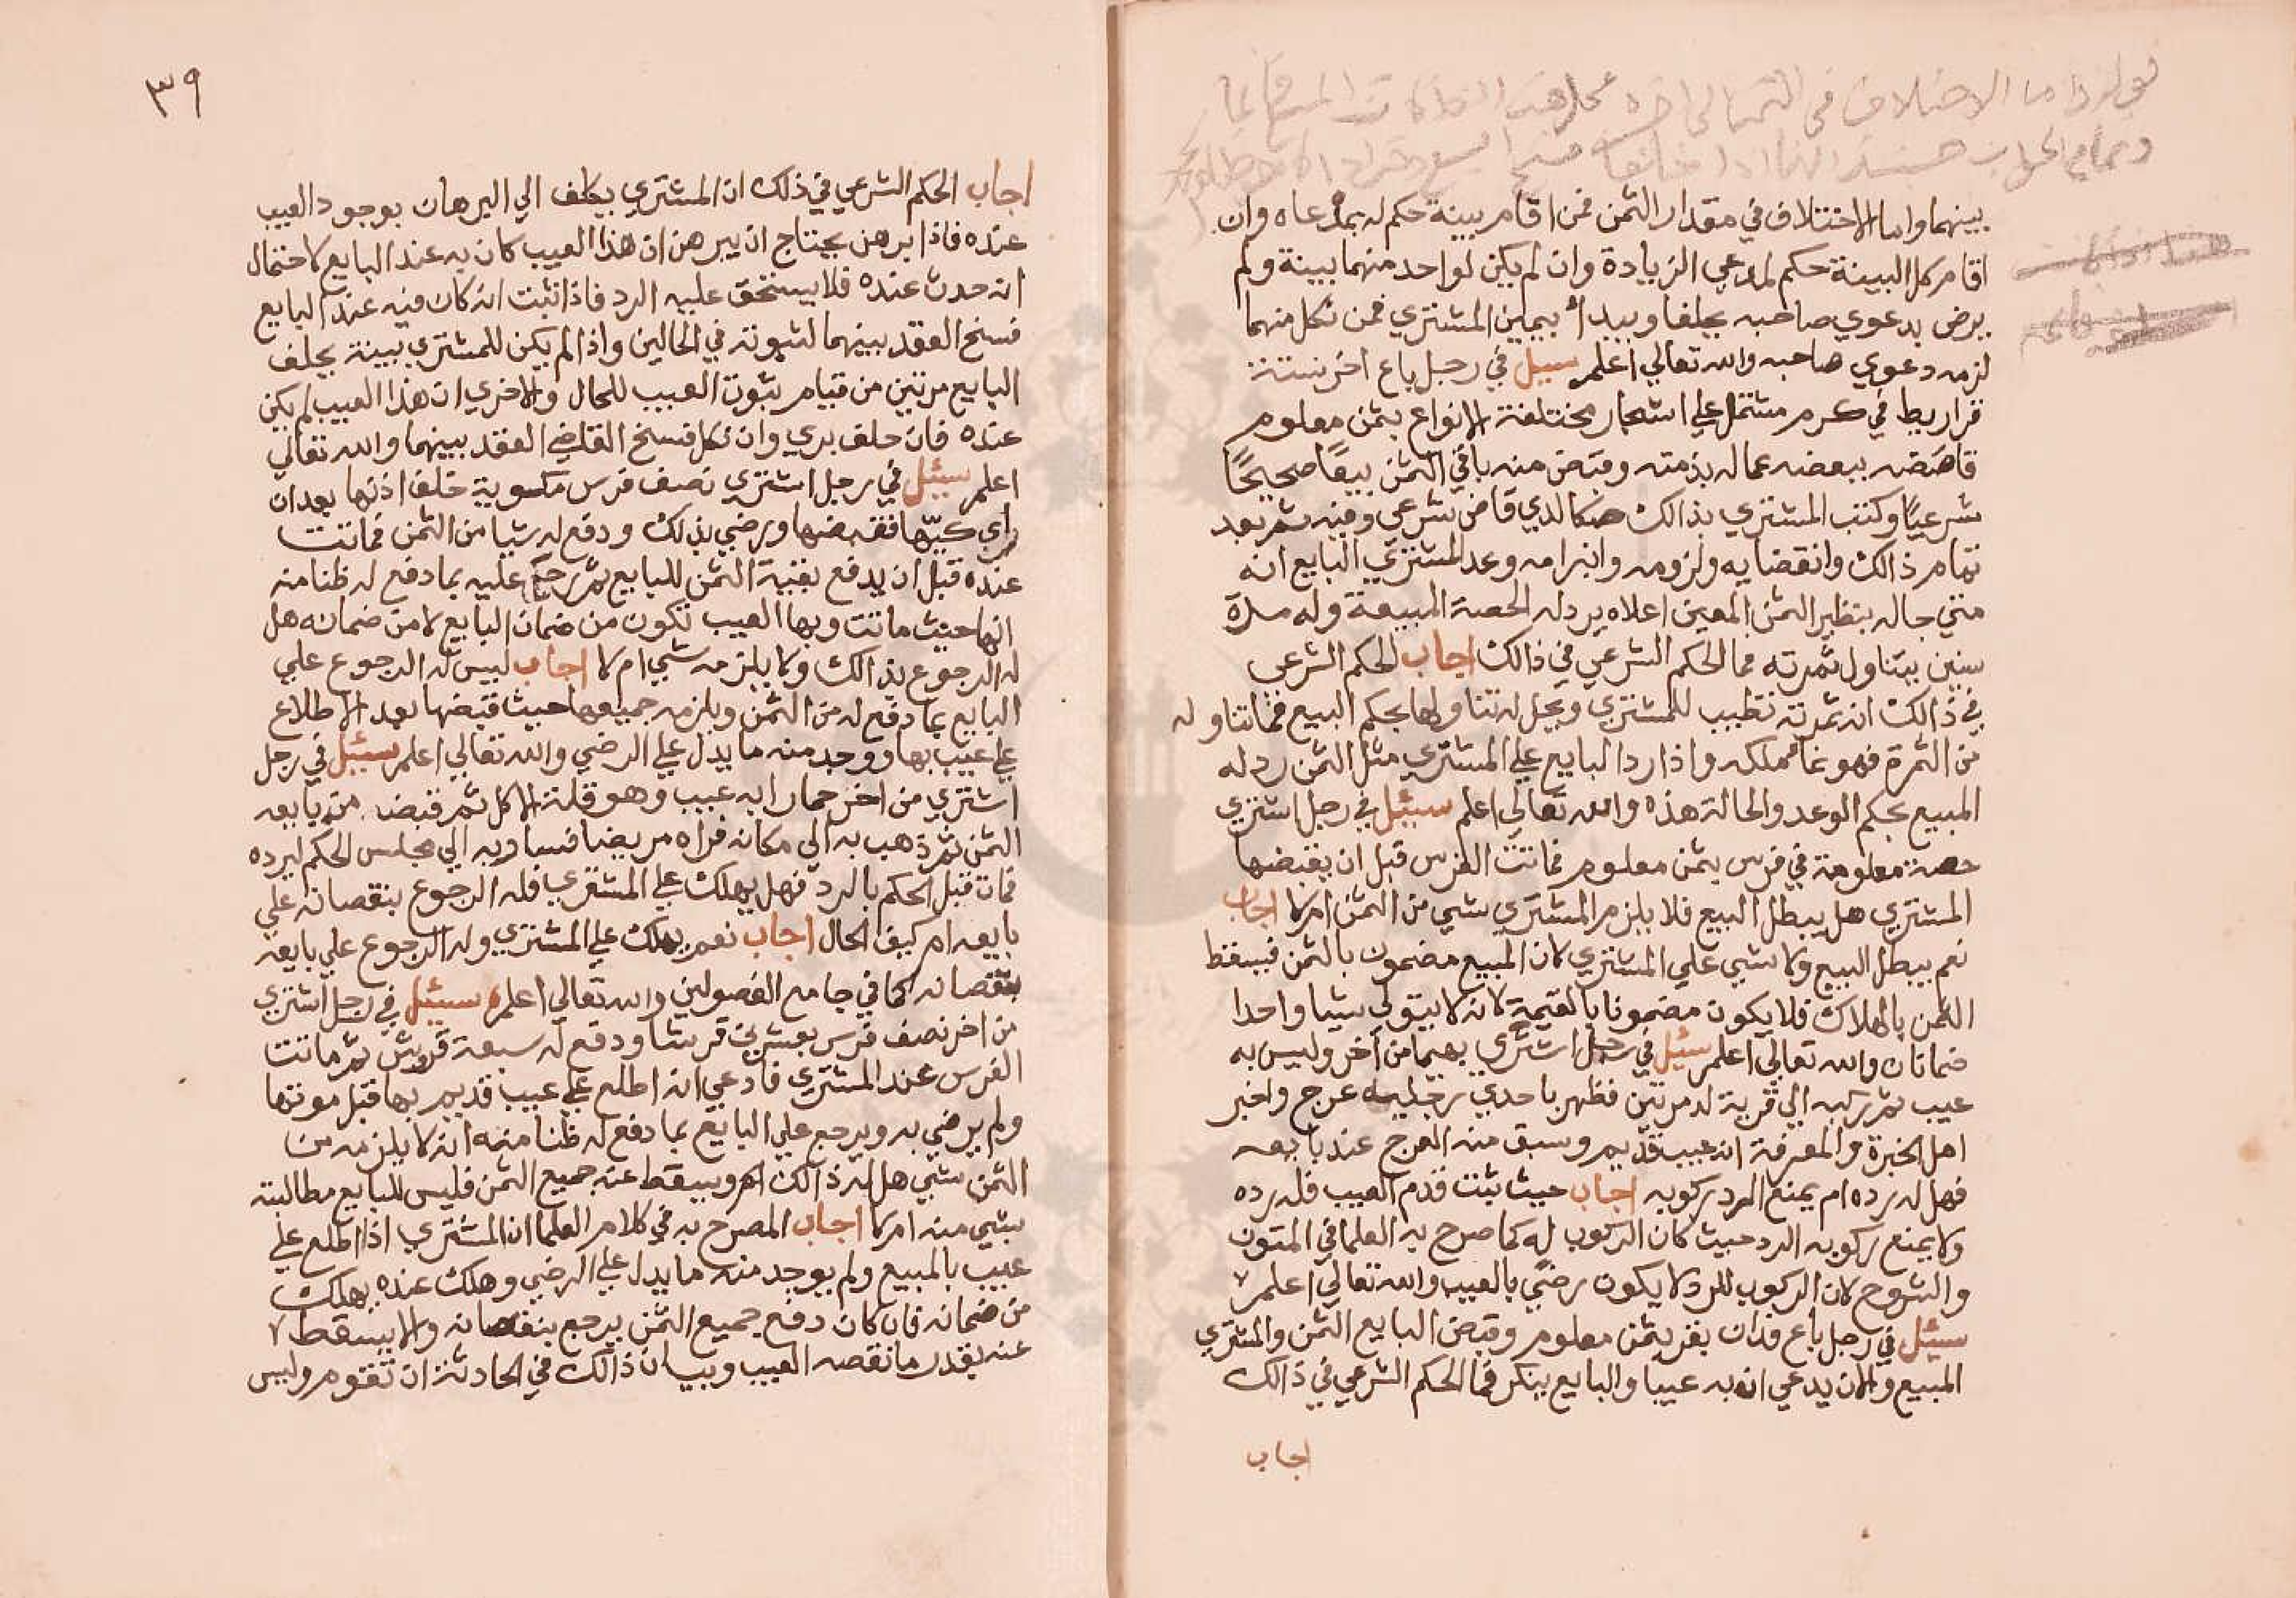 بينهما واما الاختلاف في مقدار الثمن فمن اقام بينة حكم له بمدعاه وان
اقام كل البينة حكم لمدعي الزيادة وان لم يكن لواحد منهما بينة ولم
يرض بدعوي صاحبه يحلفا ويبدأ بيمين المشتري فمن نكل منهما
لزمه دعوي صاحبه والله تعالي اعلم سيل في رجل باع اخر ستة
قراريط في كرم مشتمل علي اشجار مختلفة الانواع بثمن معلوم
قاصَصَه ببعضه عما له بذمته وقبض منه باقي الثمن بيعًا صحيحًا
شرعيًا وكتب المشتري بذالك صكا لدي قاض شرعي وفيه ثم بعد
تمام ذالك وانقضايه ولزومه وانبرامه وعد المشتري البايع انه
متي جا له بنظير الثمن المعين اعلاه يرد له الحصة المبيعة وله مدة
سنين يتناول ثمرته فما الحكم الشرعي في ذالك اجاب الحكم الشرعي
في ذالك ان ثمرته تطيب للمشتري ويحل له تناولها بحكم البيع فما تناوله
من الثمرة فهو نما مملكه واذا رد البايع علي المشتري مثل الثمن رد له
المبيع بحكم الوعد والحالة هذه والله تعالي اعلم سيئل في رجل اشتري
حصة معلومة في فرس بثمن معلوم فماتت الفرس قبل ان يقبضها
المشتري هل يبطل البيع فلا يلزم المشتري شي من الثمن ام لا اجاب
نعم يبطل البيع ولا شي علي المشتري لان المبيع مضمون بالثمن فيسقط
الثمن بالهلاك فلا يكون مضمونا بالقيمة لانه لا يتولي شيا واحدا
ضمانان والله تعالي اعلم سئيل في رجل اشتري بهيما من آخر وليس به
عيب ثم ركبه الي قرية له مرتين فظهر باحدي رجليه عرج واخبر
اهل الخبرة والمعرفة انه عيب قديم وسبق منه العرج عند بايعه
فهل له رده ام يمنع الرد ركوبه اجاب حيث ثبت قدم العيب فله رده
ولا يمنع ركوبه الرد حيث كان الركوب له كما صرح به العلما في المتون
والشروح لان الركوب للرد لا يكون رضيً بالعيب والله تعالي اعلم
سيئل في رجل باع فدان بقر بثمن معلوم وقبض البايع الثمن والمشتري
المبيع والان يدعي ان به عيبا والبايع ينكر فما الحكم الشرعي في ذالك
اجاب
٣٩
اجاب الحكم الشرعي في ذلك ان المشتري يكلف الي البرهان بوجود العيب
عنده فاذا برهن يحتاج ان يبرهن ان هذا العيب كان به عند البايع لاحتمال
انه حدث عنده فلا يستحق عليه الرد فاذا ثبت انه كان فيه عند البايع
فسخ العقد بينهما لثبوته في الحالين واذا لم يكن للمشتري بينة يحلف
البايع مرتين من قيام ثبوت العيب للحال والاخري ان هذا العيب لم يكن
عنده فان حلف بري وان نكل فسخ القاضي العقد بينهما والله تعالي
اعلم سيئل في رجل اشتري نصف فرس مكسوية خلف اذنها بعد ان
رأي كيّها فقبضها ورضي بذلك ودفع له شيا من الثمن فماتت
عنده قبل ان يدفع بقية الثمن للبايع ثم رجع عليه بما دفع له ظنا منه
انها حيث ماتت وبها العيب تكون من ضمان البايع لا من ضمانه هل
له الرجوع بذالك ولا يلزمه شي ام لا اجاب ليس له الرجوع علي
البايع بما دفع له من الثمن ويلزمه جميعها حيث قبضها بعد الاطلاع
علي عيب بها ووجد منه ما يدل علي الرضي والله تعالي اعلم سيئل في رجل
اشتري من اخر حمارا به عيب وهو قلة الاكل ثم قبض من بايعه
الثمن ثم ذهب به الي مكانه فراه مريضا فساربه الي مجلس الحكم ليرده
فمات قبل الحكم بالرد فهل يهلك علي المشتري فله الرجوع بنقصانه علي
بايعه ام كيف الحال اجاب نعم يهلك علي المشتري وله الرجوع علي بايعه
بنقصانه كما في جامع الفصولين والله تعالي اعلم سيئل في رجل اشتري
من اخر نصف فرس بعشرين قرشا ودفع له سبعة قروش ثم ماتت
الفرس عند المشتري فادعي انه اطلع علي عيب قديم بها قبل موتها
ولم يرضي به ويرجع علي البايع بما دفع له ظنا منه انه لا يلزمه من
الثمن شي هل له ذالك ام ويسقط عنه جميع الثمن فليس للبايع مطالبته
بشي منه ام لا اجاب المصرح به في كلام العلما ان المشتري اذا اطلع علي
عيب بالمبيع ولم يوجد منه ما يدل علي الرضي وهلك عنده يهلك
من ضمانه فان كان دفع جميع الثمن يرجع بنقصانه والا يسقط
عنه بقدر ما نقصه العيب وبيان ذالك في الحادثة ان تقوم وليس